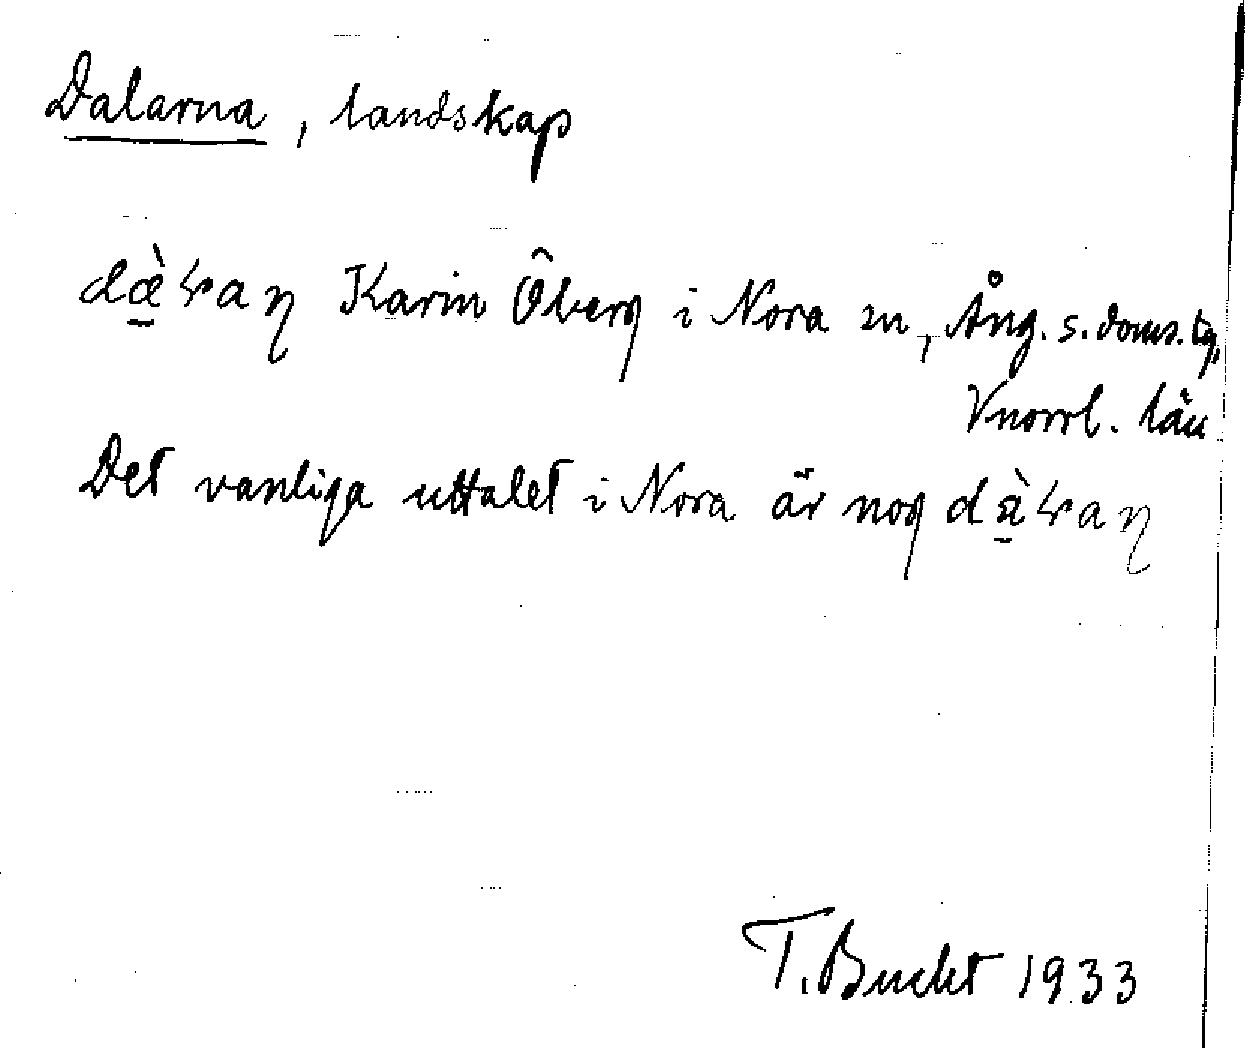 Dalarna, landskap
Karin Öberg i Nora sn, Ång. s. doms. tg,
Vnorrl. län
Det vanliga uttalet i Nora är nog
T. Bucht 1933